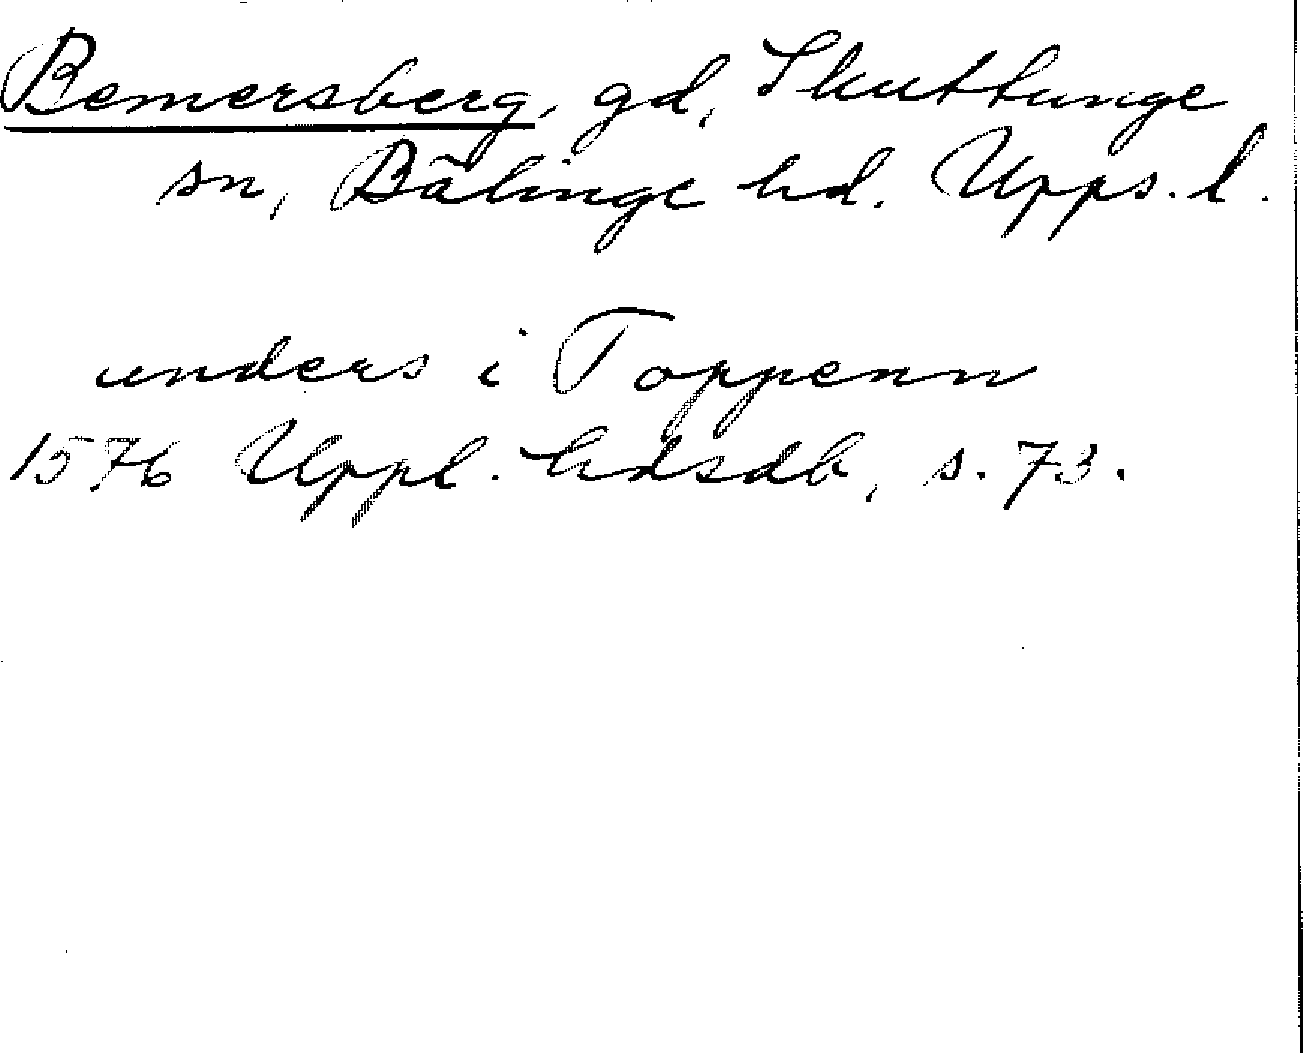 Bemersberg, gd, Skuttunge
sn, Bälinge hd. Upps. l.
unders i Toppenn
1576 Uppl. hdsdb, s. 73.